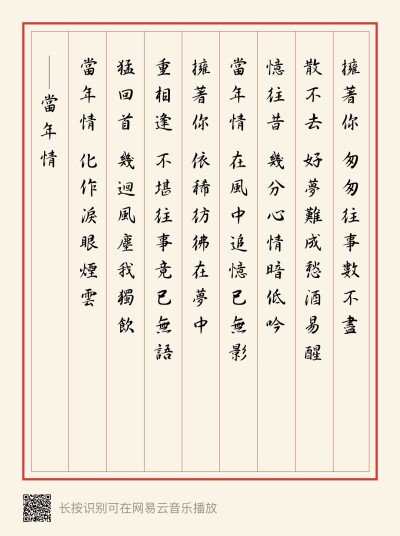 擁著你 匆匆往事數不盡
散不去 好夢難成愁酒易醒
憶往昔 幾分心情暗低吟
當年情 在風中追憶已無影
擁著你 依稀彷彿在夢中
重相逢 不堪往事竟已無語
猛回首 幾迴風塵我獨飲
當年情 化作淚眼煙雲
——當年情
长按识别可在网易云音乐播放